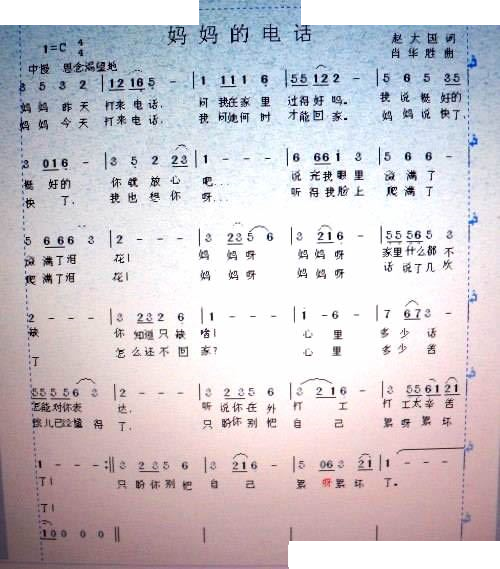 妈妈的电话
1=C 4/4
赵大国 词
中慢 思念渴望地
肖华胜 曲
3 5 3 2 | 12 16 5 - | 1 11 1 6 | 55 12 2 - | 5 6 5 35
妈妈昨天 打来电话, 问我在家里 过得好吗。 我说挺好的
妈妈今天 打来电话, 我问她何时 才能回家。 妈妈说快了,
3 016 - | 3 5 2 23 | 1 - - - | 6 661 3 | 5 6 6 -
挺好的 你就放心 吧... 说完我眼里 溢满了
快了, 我也想你 呀... 听得我脸上 爬满了
5 66 6 3 | 2 - - - | 3 23 5 6 | 3 216 - | 55 556 5 3
溢满了泪 花! 妈妈呀 妈妈呀 家里什么都不
爬满了泪 花! 妈妈呀 妈妈呀 话说了几次
2 - - - | 3 23 2 6 | 1 - - - | 1 - 6 | 7 67 3 -
缺 你知道只缺 啥! 心里 多少话
了 怎么还不回 家? 心里 多少苦
55 55 6 3 | 2 - - - | 3 2 35 6 | 3 2 1 6 | 3 556 1 21
怎能对你表 达, 听说你在外 打工 打工太辛苦
得了, 只盼你别把 自己 累呀累坏
1 - - - :|| 3 2 3 5 6 | 3 216 - | 5 063 21 | 1 - - -
了! 只盼你别把 自己 累呀累坏 了。
了!
10 0 0 0 ||